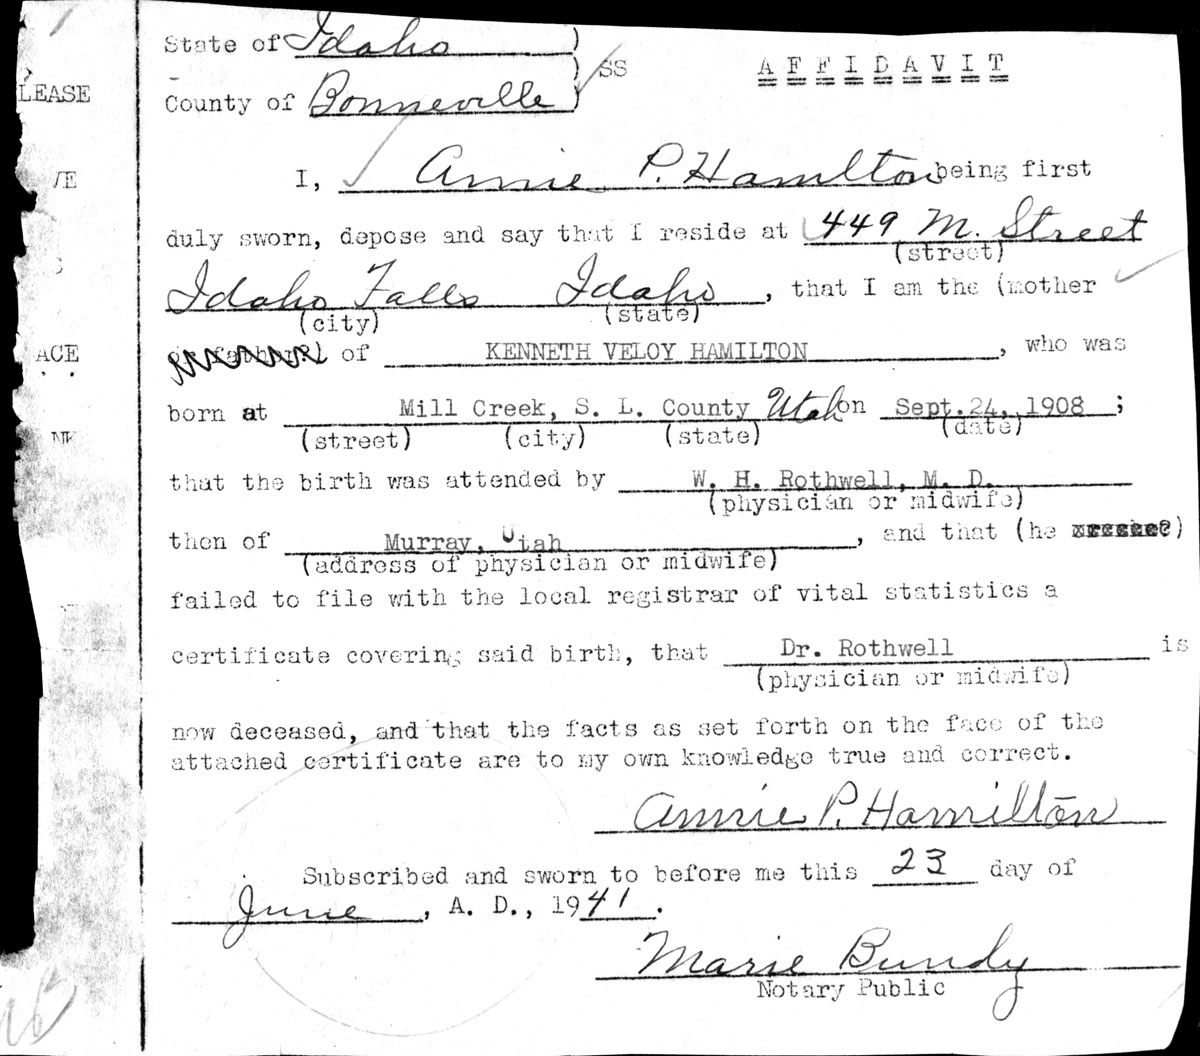 State of Idaho )
) SS
AFFIDAVIT
County of Bonneville )
I, Annie P. Hamilton being first
duly sworn, depose and say that I reside at 449 M. Street
(street)
Idaho Falls Idaho, that I am the (mother
(city) (state)
or father) of KENNETH VELOY HAMILTON, who was
born at Mill Creek, S. L. County Utah on Sept. 24, 1908 ;
(street) (city) (state) (date)
that the birth was attended by W. H. Rothwell, M. D.
(physician or midwife)
then of Murray, Utah, and that (he )
(address of physician or midwife)
failed to file with the local registrar of vital statistics a
certificate covering said birth, that Dr. Rothwell is
(physician or midwife)
now deceased, and that the facts as set forth on the face of the
attached certificate are to my own knowledge true and correct.
Annie P. Hamilton
Subscribed and sworn to before me this 23 day of
June, A. D., 1941.
Marie Bundy
Notary Public
LEASE
VE
ACE